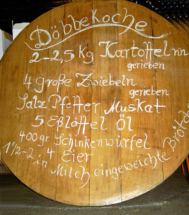 Döbbekoche
2-2,5 kg Kartoffeln
gerieben
4 große Zwiebeln
gerieben
Salz Pfeffer Muskat
5 Eßlöffel Öl
400gr Schinkenwürfel
4 Eier
1/2-2 in Milch eingeweichte Brötch